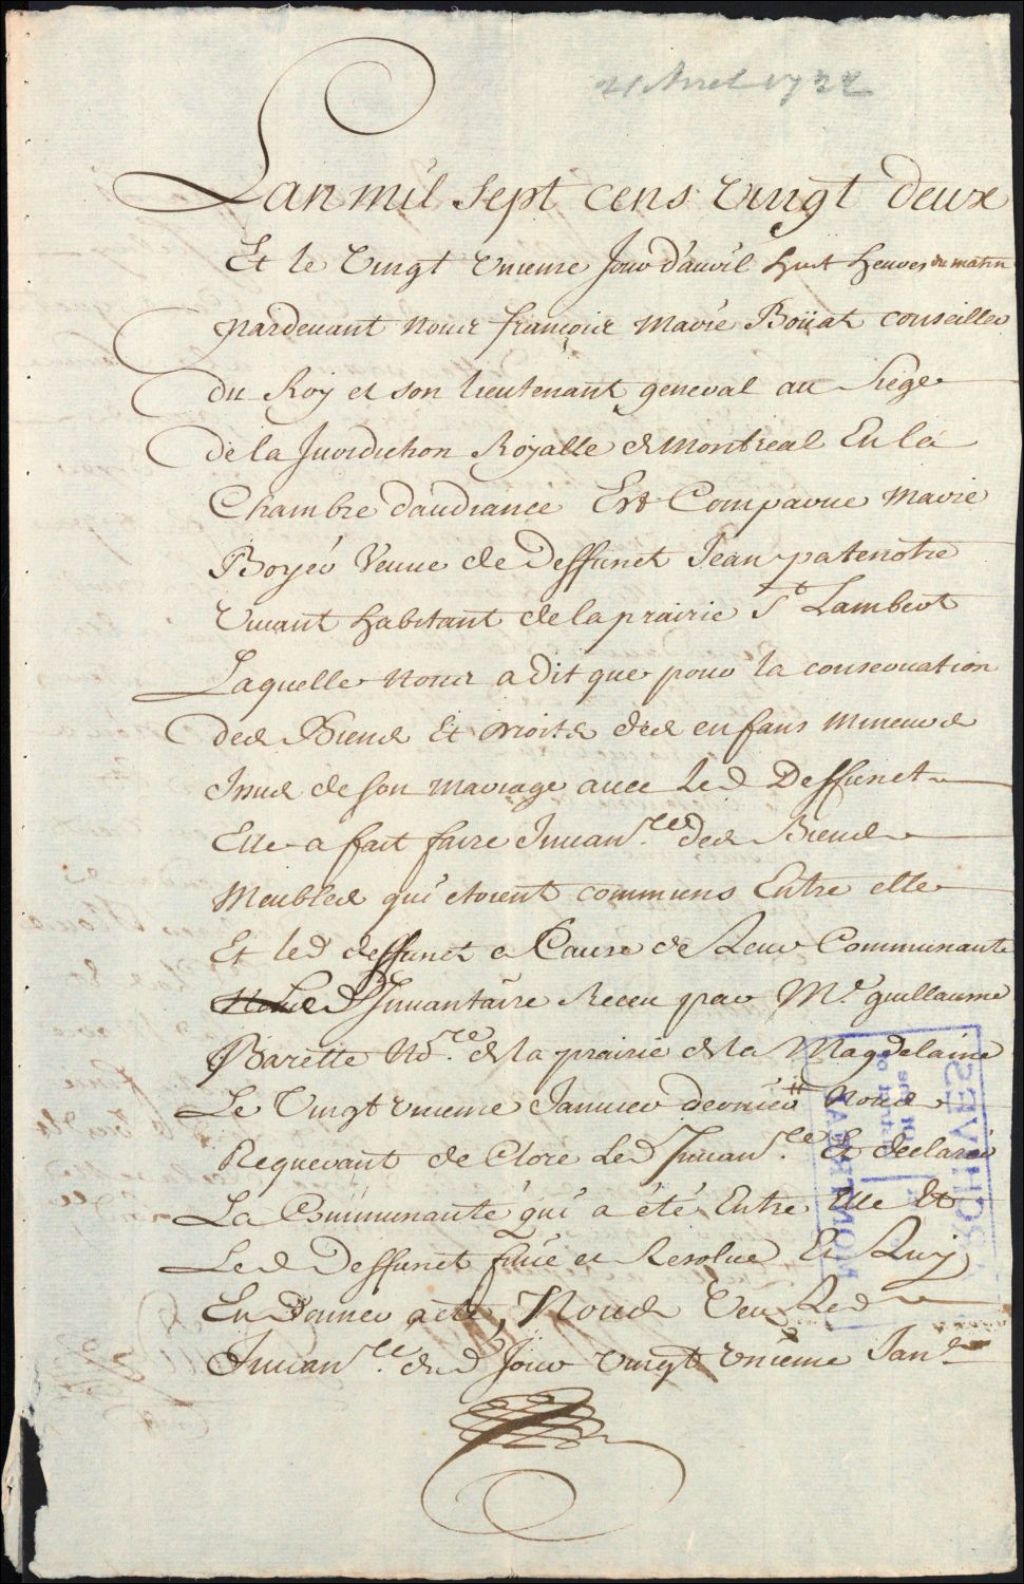 21 Avril 1722
Lan mil sept cens vingt deux
Et le vingt unieme Jour dauril huit heures du matin
pardeuant nous françois marie Boüat conseiller
du Roy et son lieutenant general au Siége
de la Jurisdiction Royalle de Montreal En la
Chambre daudiance Est Comparue marie
Boyér veuue de deffunct Jean patenotre
viuant habitant de la prairie St Lambert
Laquelle nous a dit que pour la conseruation
des Biens Et droits des enfans mineurs
Jssus de son mariage auec led Deffunct
Elle a fait faire Jnuanre des Biens
Meubles qui étoient communs Entre elle
Et led deffunct a Cause de Leur Communauté
Led Jnuantaire Receu par Me guillaume
Barette Nore de la prairie de la Magdelaine
Le Vingt unieme Januier dernier Nous
Requerant de Clore Led Jnuanre Et declarer
La Communauté qui a été Entre Elle Et
Led Deffunct finie et Resolue Et Luy
En donner acte, Nous Veu Led
Jnuanre dud Jour vingt unieme Janr
ARCHIVES
MONTREAL